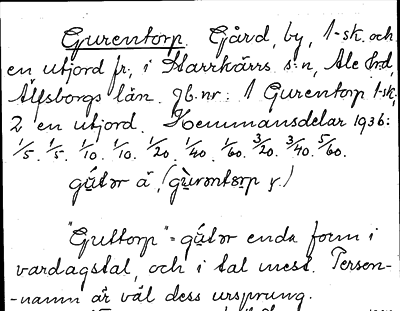 Gurentorp. Gård, by, 1-sk. och
en utjord fr, i Starrkärrs s:n, Ale hd,
Älfsborgs län. Jb.nr: 1 Gurentorp 1-sk,
2 en utjord. Hemmansdelar 1936:
1/5. 1/5. 1/10. 1/10. 1/20. 1/40. 1/60. 3/20. 3/40. 5/60.
gútər å, (gùrəntɵrp y.)
"Guttorp" = gútər enda form i
vardagstal, och i tal mest. Person-
-namn är väl dess ursprung.